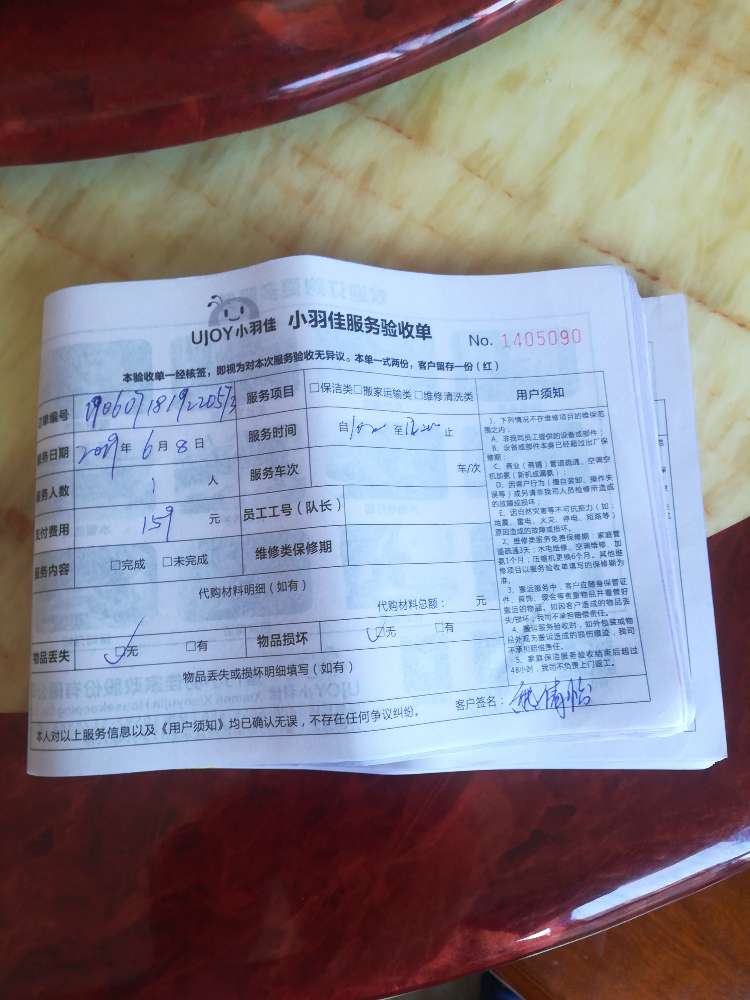 UJOY小羽佳 小羽佳服务验收单 No. 1405090
本验收单一经核签，即视为对本次服务验收无异议。本单一式两份，客户留存一份（红）
订单编号 服务项目 □保洁类□搬家运输类□维修清洗类 用户须知
服务日期 2019年 6月 8日 服务时间 自 至 止
服务人数 1 人 服务车次 车/次
支付费用 159 元 员工工号（队长）
服务内容 □完成 □未完成 维修类保修期
代购材料明细（如有）
代购材料总额： 元
物品丢失 ☑无 □有 物品损坏 ☑无 □有
物品丢失或损坏明细填写（如有）
本人对以上服务信息以及《用户须知》均已确认无误，不存在任何争议纠纷。 客户签名：
1、下列情况不在维修项目的维保范
围之内：
A、非我司员工提供的设备或部件；
B、设备或部件本身已经超过出厂保
修期；
C、商业（商铺）管道疏通、空调空
机加氨（新机或漏氟）；
D、因客户行为（擅自装卸、操作失
误等）或另请非我司人员检修所造成
的故障或损坏；
E、因自然灾害等不可抗能力（如：
地震、雷电、火灾、停电、短路等）
原因造成的故障或损坏。
2、维修类服务免费保修期：家庭管
道疏通3天；水电维修、空调维修、加
氨1个月；压缩机更换6个月。其他维
修项目以服务验收单填写的保修期为
准。
3、搬运服务中，客户应随身保管证
件、首饰、现金等贵重物品并看管好
搬运的物品。如因客户造成的物品丢
失/损坏，我司不承担赔偿责任。
4、搬运服务验收时，如外包装或物
品外观无搬运造成的损伤痕迹，我司
不承担赔偿责任。
5、家庭保洁服务验收结束后超过
48小时，我司不负责上门返工。